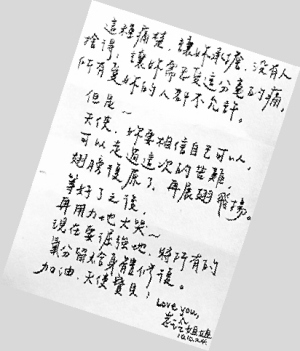 這種痛楚，讓妳承擔，沒有人
捨得，讓妳需忍受這分毫的痛，
所有愛妳的人都不允許。
但是~
天使，妳要相信自己可以，
可以走過這次的苦難
翅膀復原了，再展翅飛揚。
等好了之後，
再用力地大哭~
現在要倔強地，將所有的
氣分留給身體修復。
加油，天使寶貝！
Love you,
姐姐